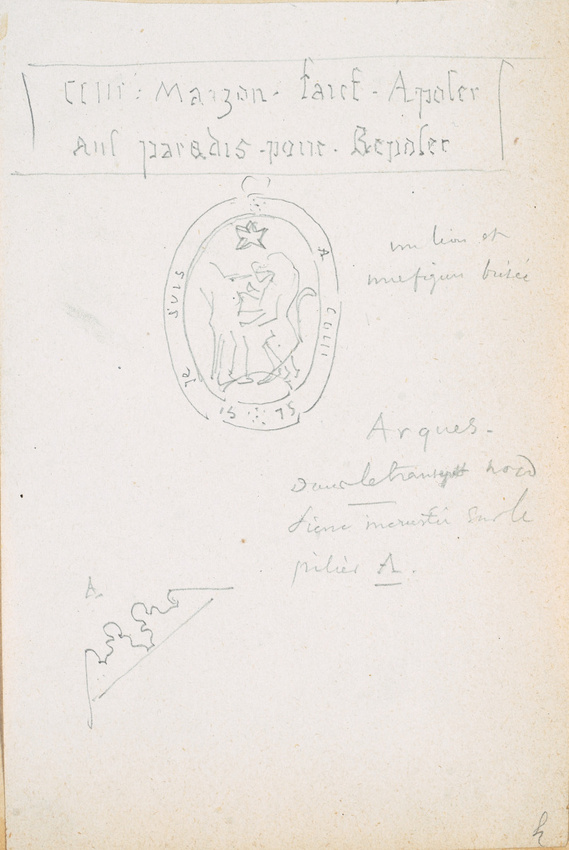 Cεlll : Maizon · faict - Apoler
Aul paradis - pour · Repoler
JE SUIS A CELLI
1575
un lion et
une figure brisée
Arques -
Dans le transept nord
pilier A.
A.
h